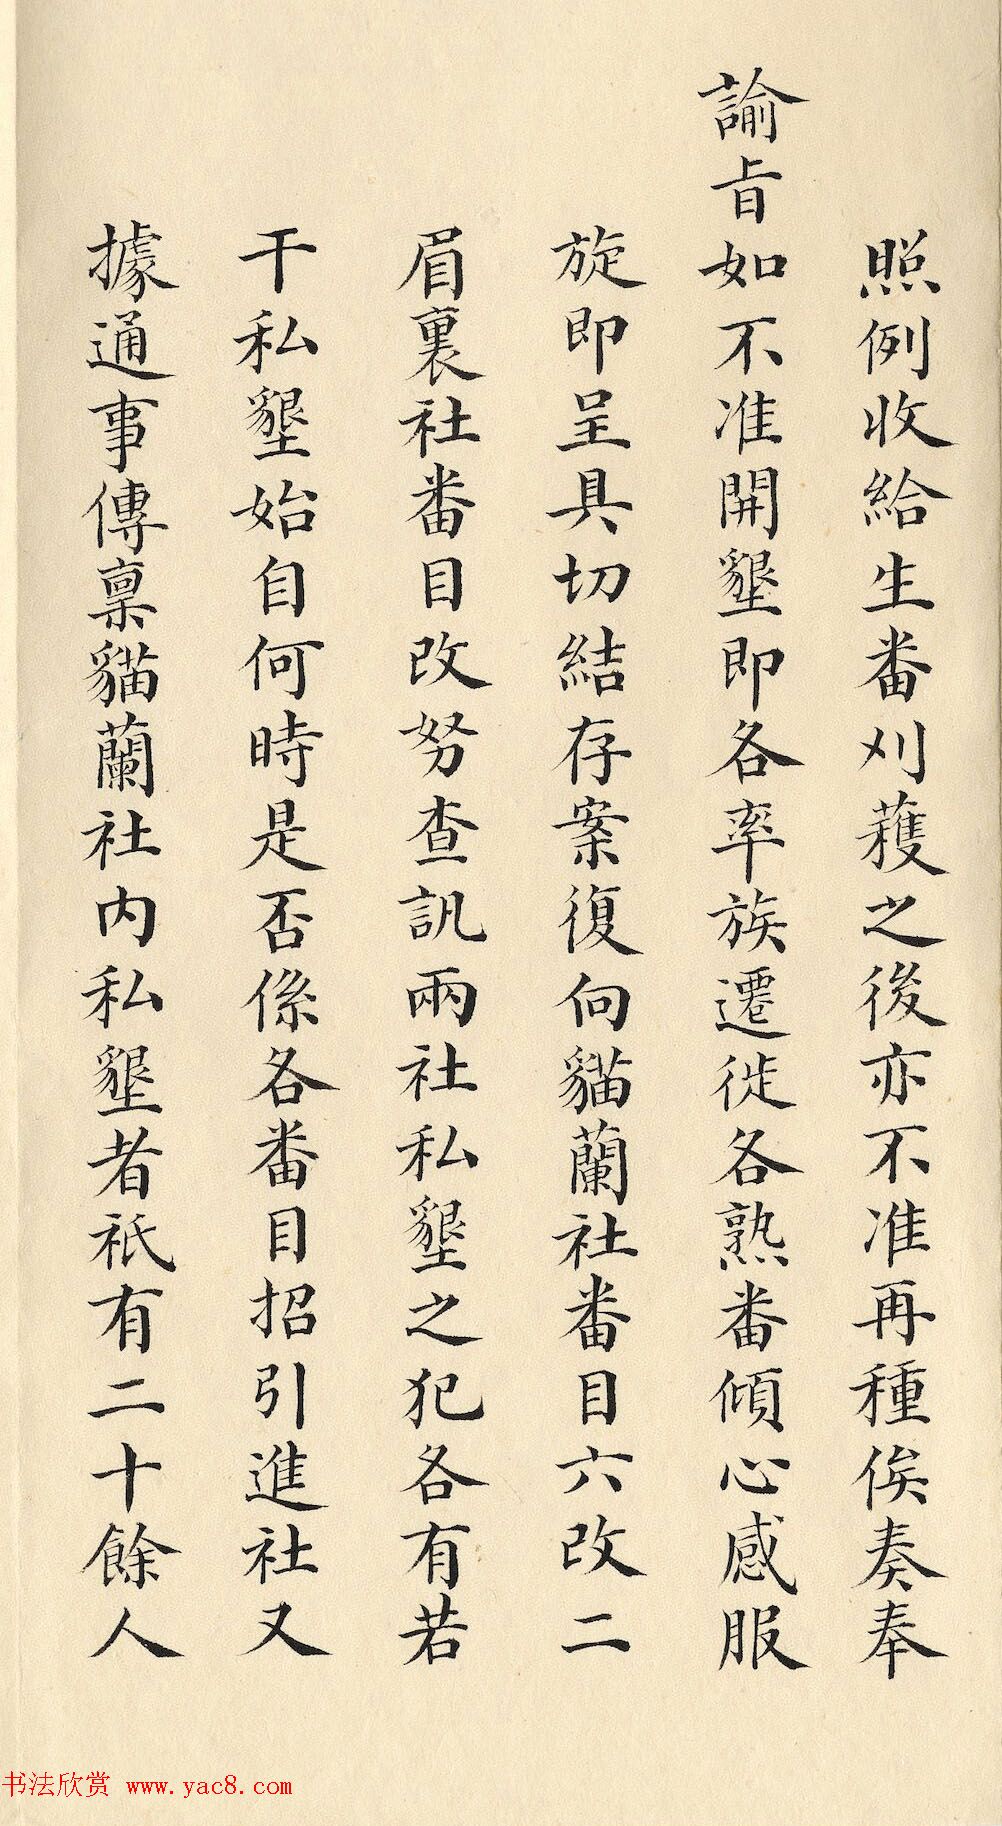 照例收給生番刈蒦之後亦不准再種俟奏奉
諭旨如不准開墾即各率族遷徙各熟番傾心感服
旋即呈具切結存案復向貓蘭社番目六改二
眉裏社番目改努查訊兩社私墾之犯各有若
干私墾始自何時是否係各番目招引進社又
據通事傳稟貓蘭社内私墾者祇有二十餘人
书法欣赏 www.yac8.com